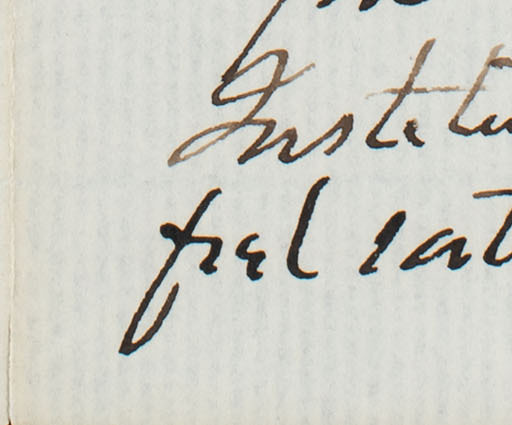 Institu
feel sat